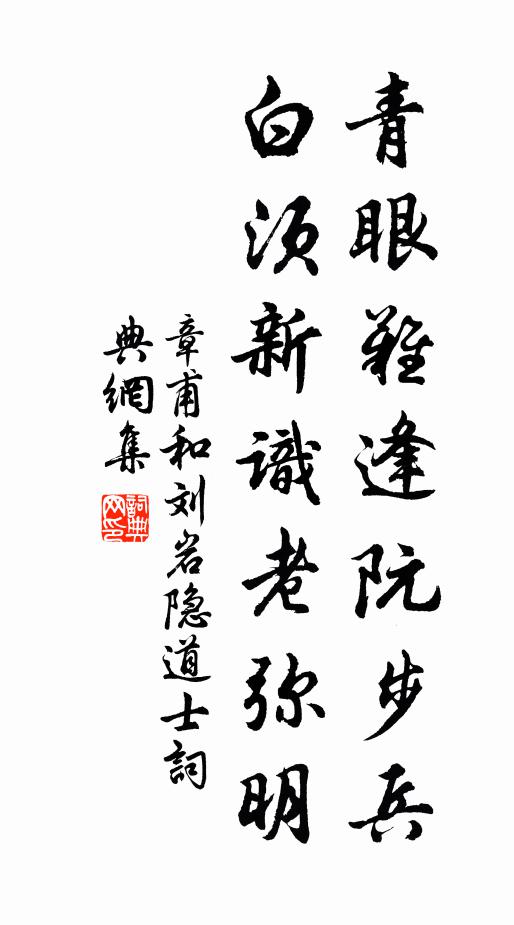 青眼難逢阮步兵
白须新識老弥明
章甫和刘岩隐道士詞
典網集
詞典网印